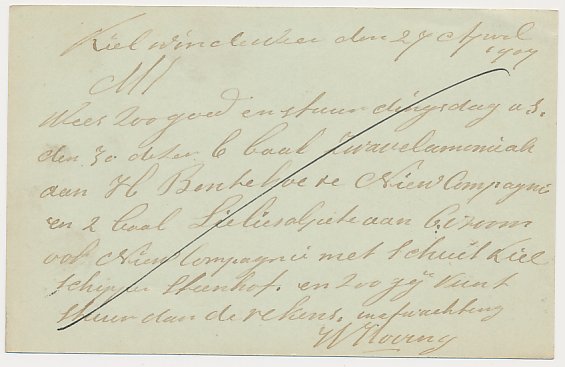 Kiel windeweer den 27 April
1907
M H
Wees zoo goed en stuur dingsdag a s.
den 30 dezer 6 baal zwavelamoniak
aan H Bentehoe te Niew Compagnie
en 2 baal aan
ook Niew Compagnie met schuit Kiel
schipper Steenhof. en zoo gij kunt
stuur dan de rekens. inafwachting
W Hoving